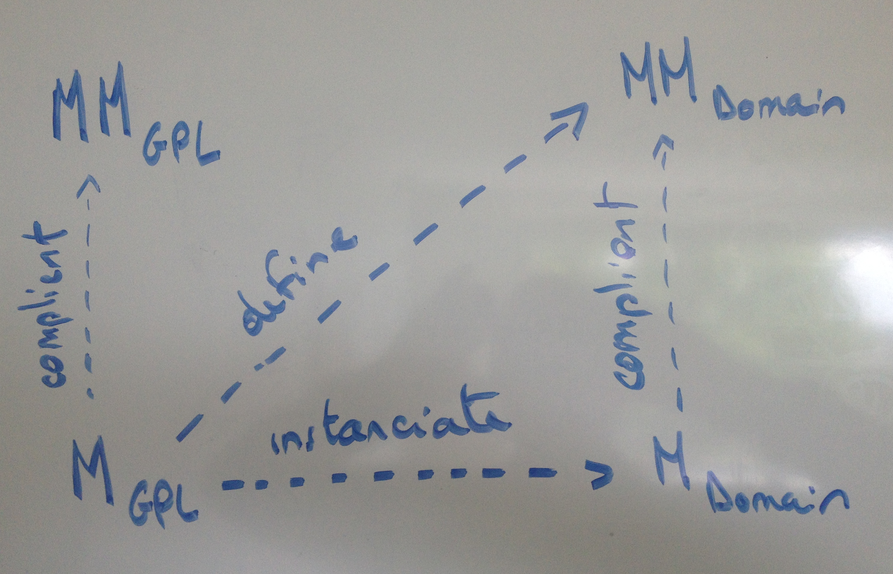 MM GPL
MM Domain
complient
define
complient
instanciate
M GPL
M Domain